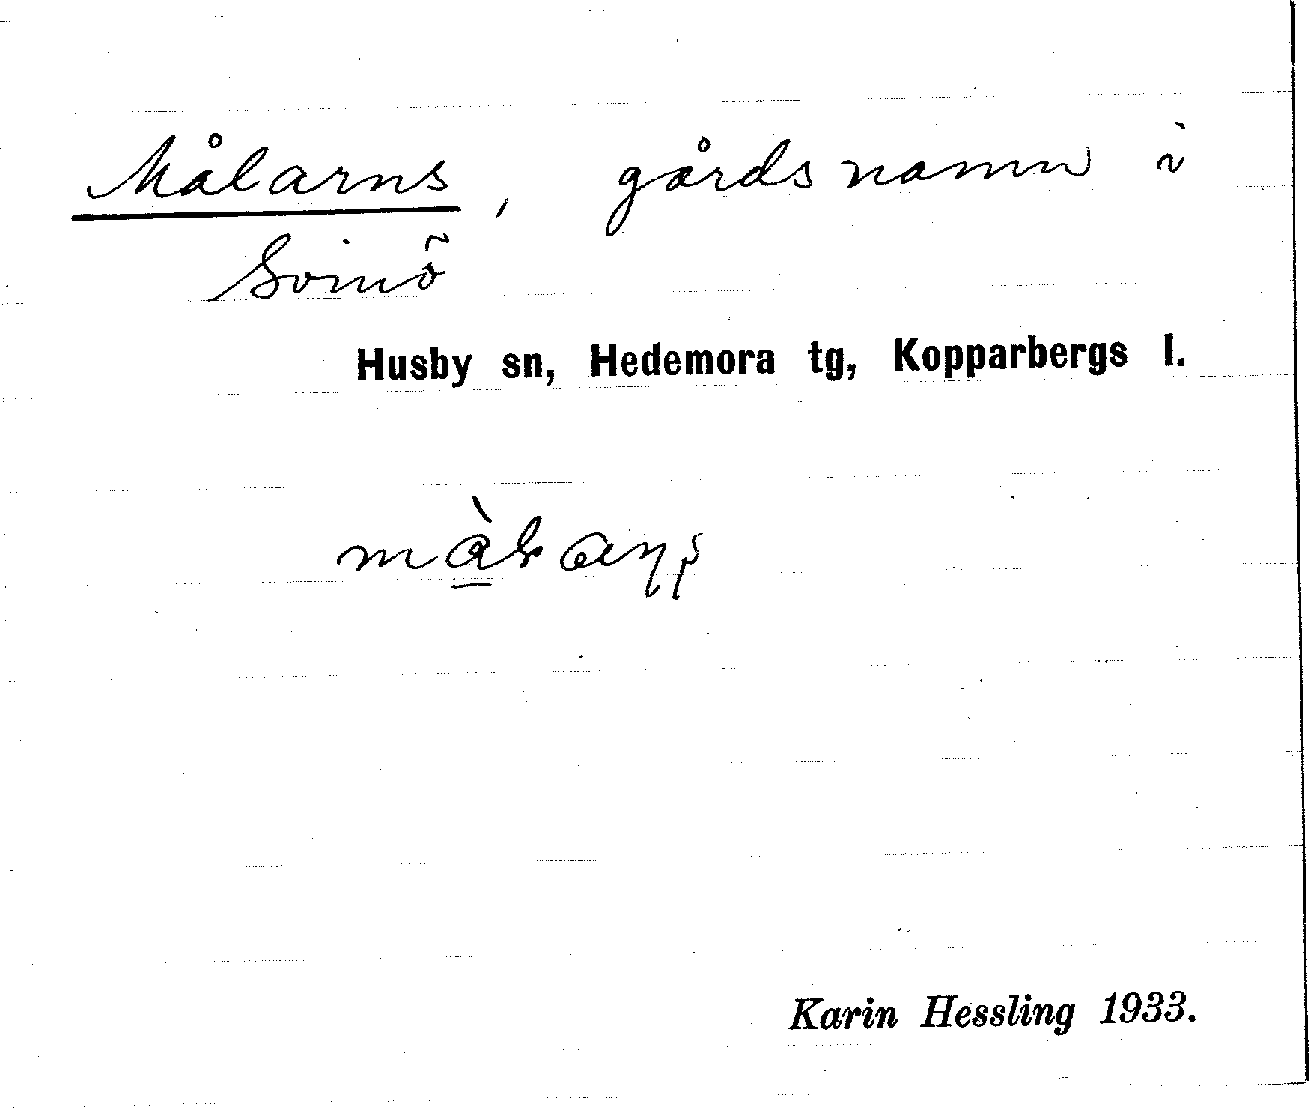 Målarns, gårdsnamn i
Svinö
Husby sn, Hedemora tg, Kopparbergs l.
Karin Hessling 1933.